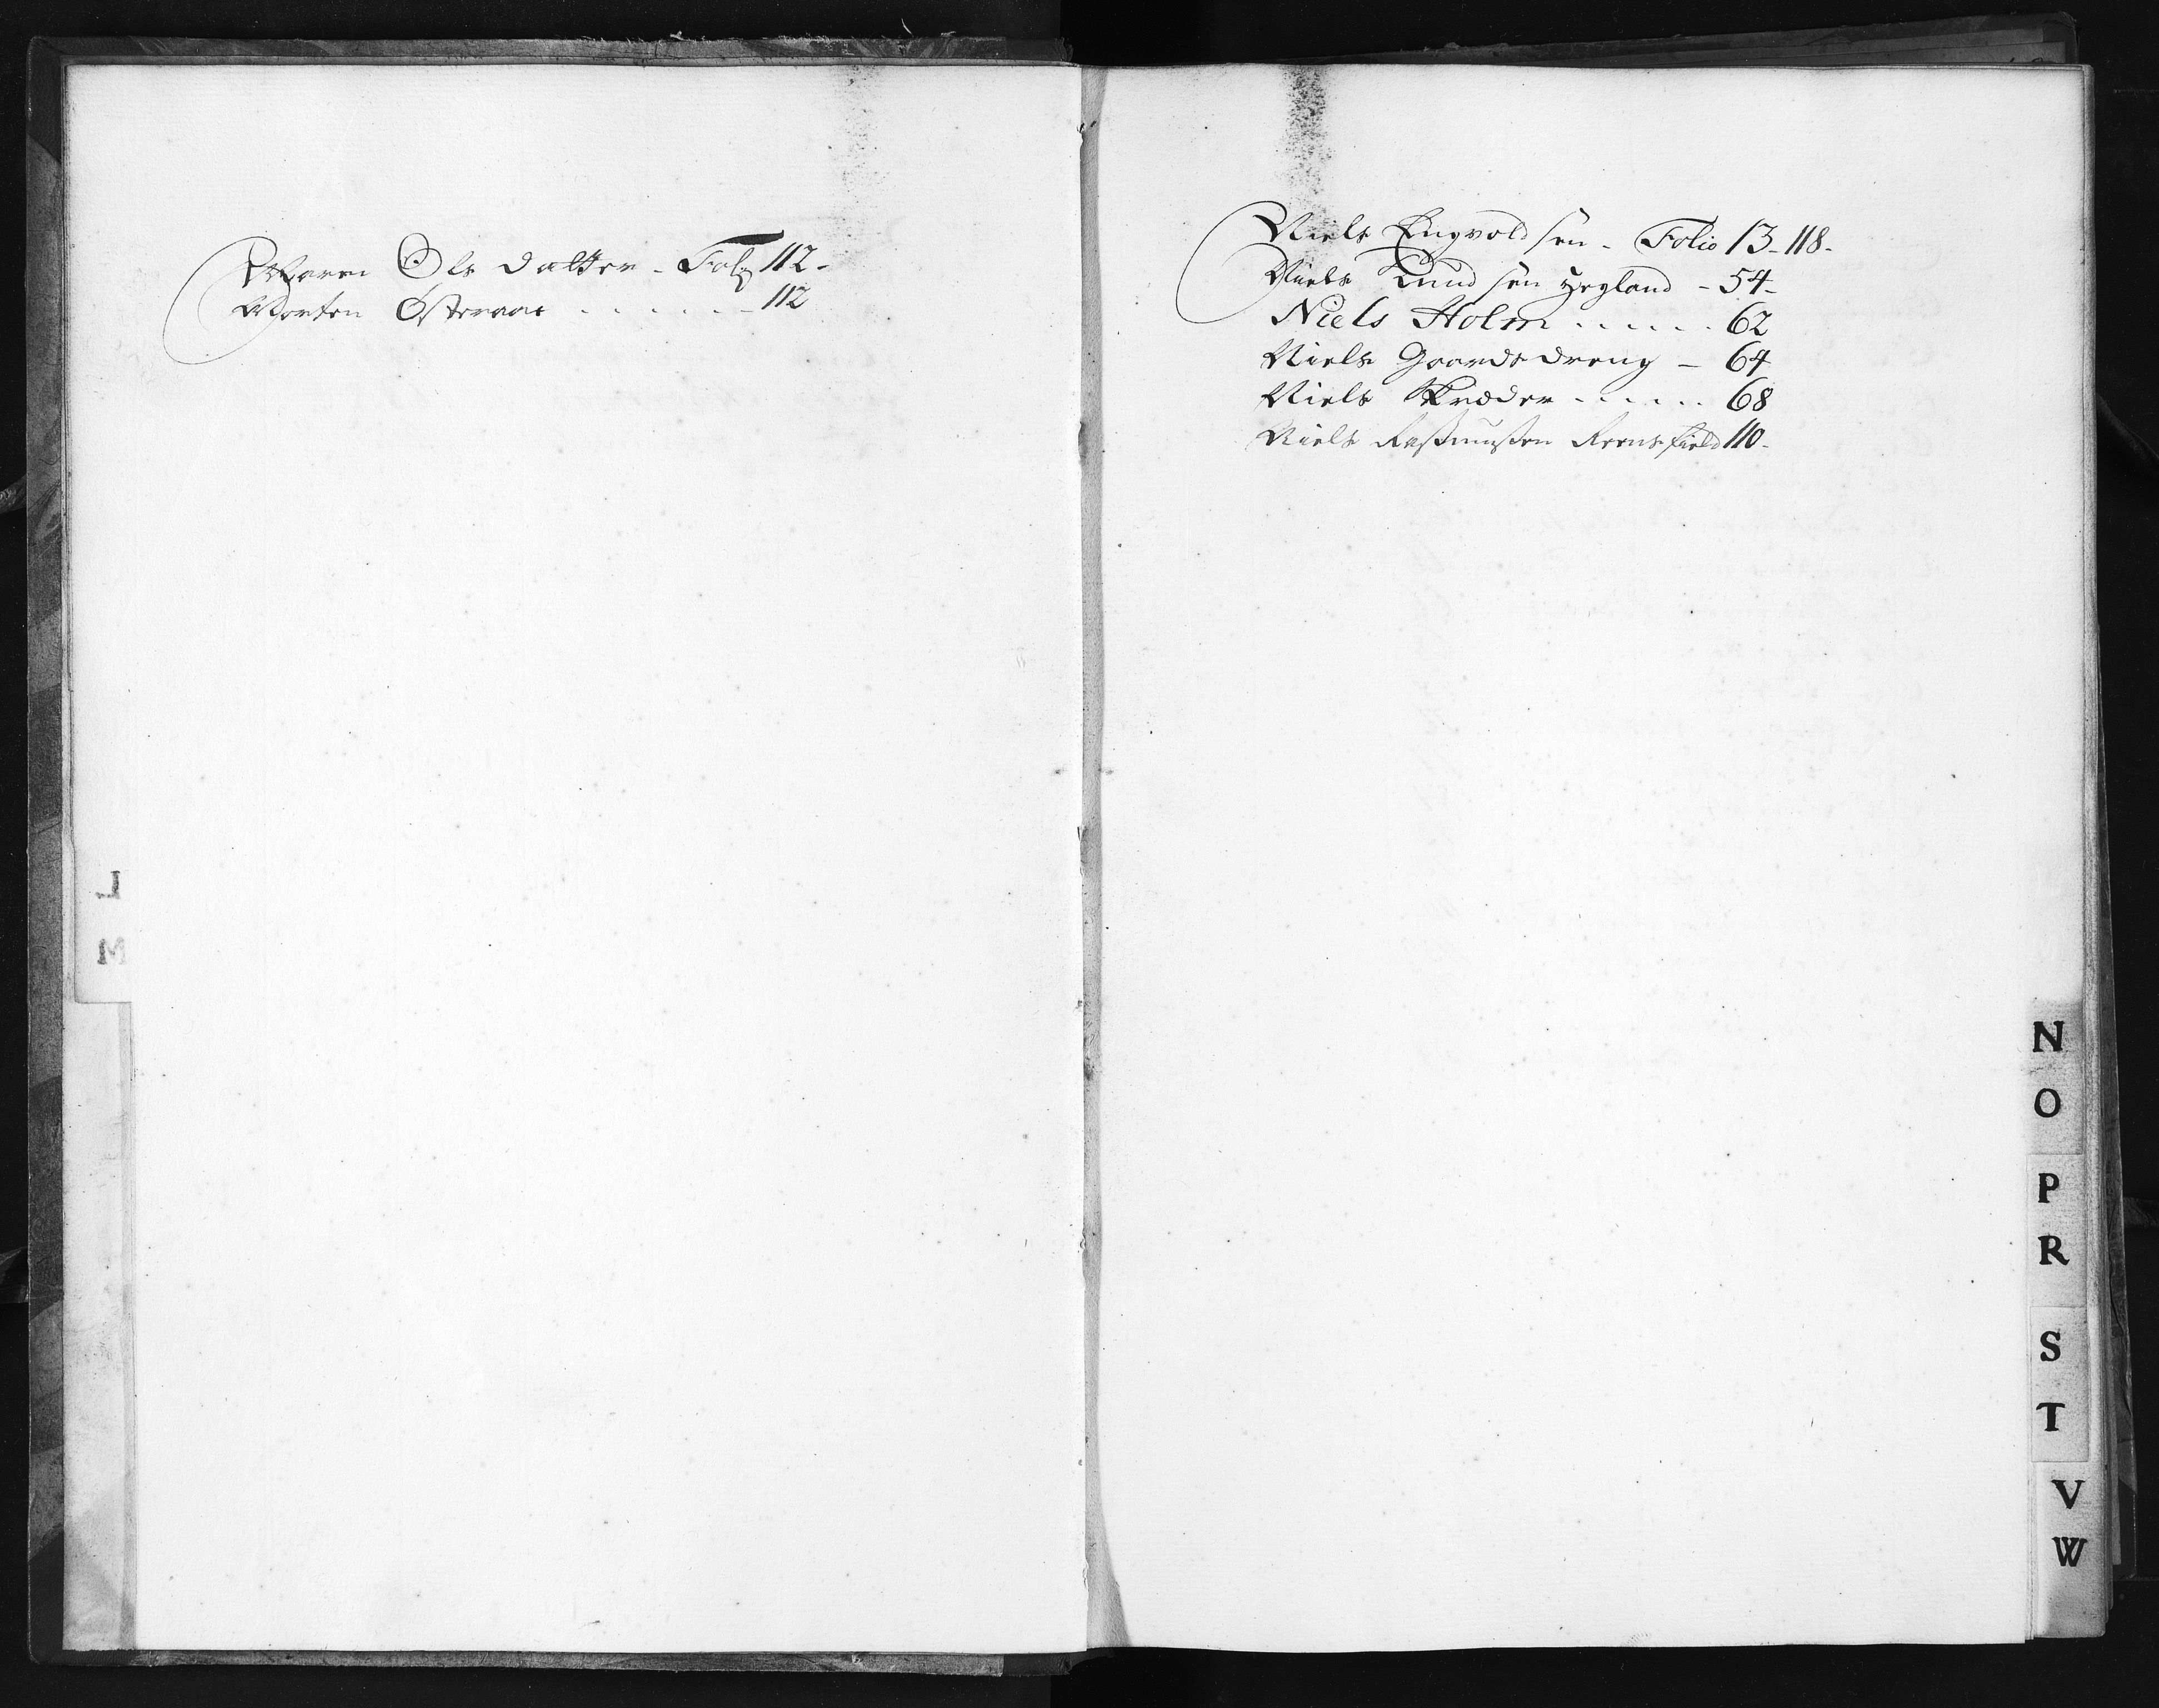 Maren Ols datter - Fol: 112 -
Morten Østeraae . . . . . . - 112
L
M
Niels Engvold sen - Folio 13 - 118 -
Niels Knud sen Hegland - 54 -
Niels Holm . . . . . . 62
Niels Gaardsdreng - 64
Niels Skræder . . . . . . 68
Niels Rasmussen Reensfield 110 -
N
O
P
R
S
T
V
W